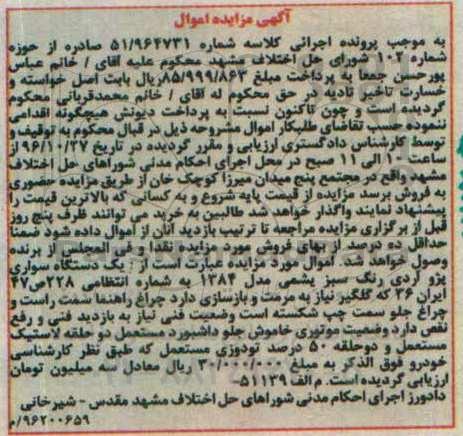 آگهی مزایده اموال
به موجب پرونده اجرائی کلاسه شماره ۵۱/۹۶۴۷۳۱ صادره از حوزه
شماره ۱۰۲ شورای حل اختلاف مشهد محکوم علیه آقای / خانم عباس
پورحسن جمعا به پرداخت مبلغ ۸۵/۹۹۹/۸۶۳ ریال بابت اصل خواسته و
خسارت تاخیر تادیه در حق محکوم له آقای / خانم محمدقربانی محکوم
گردیده است و چون تاکنون نسبت به پرداخت دیونش هیچگونه اقدامی
ننموده حسب تقاضای طلبکار اموال مشروحه ذیل در قبال محکوم به توقیف و
توسط کارشناس دادگستری ارزیابی و مقرر گردیده در تاریخ ۹۶/۱۰/۲۷ از
ساعت ۱۰ الی ۱۱ صبح در محل اجرای احکام مدنی شوراهای حل اختلاف
مشهد واقع در مجتمع پنج میدان میرزا کوچک خان از طریق مزایده حضوری
به فروش برسد مزایده از قیمت پایه شروع و به کسانی که بالاترین قیمت را
پیشنهاد نمایند واگذار خواهد شد طالبین به خرید می توانند ظرف پنج روز
قبل از برگزاری مزایده مراجعه تا ترتیب بازدید آنان از اموال داده شود ضمنا
حداقل ده درصد از بهای فروش مورد مزایده نقدا و فی المجلس از برنده
وصول خواهد شد. اموال مورد مزایده عبارت است از : یک دستگاه سواری
پژو آردی رنگ سبز یشمی مدل ۱۳۸۴ به شماره انتظامی ۲۲۸ص۴۷
ایران ۳۶ که گلگیر نیاز به مرمت و بازسازی دارد چراغ راهنما سمت راست و
چراغ جلو سمت چپ شکسته است وضعیت فنی نیاز به بازدید فنی و رفع
نقص دارد وضعیت موتوری خاموش جلو داشبورد مستعمل دو حلقه لاستیک
مستعمل و دوحلقه ۵۰ درصد تودوزی مستعمل که طبق نظر کارشناسی
خودرو فوق الذکر به مبلغ ۳۰/۰۰۰/۰۰۰ ریال معادل سه میلیون تومان
ارزیابی گردیده است. م الف ۵۱۱۳۹
دادورز اجرای احکام مدنی شوراهای حل اختلاف مشهد مقدس - شیرخانی
۹۶۲۰۰۶۵۹/م